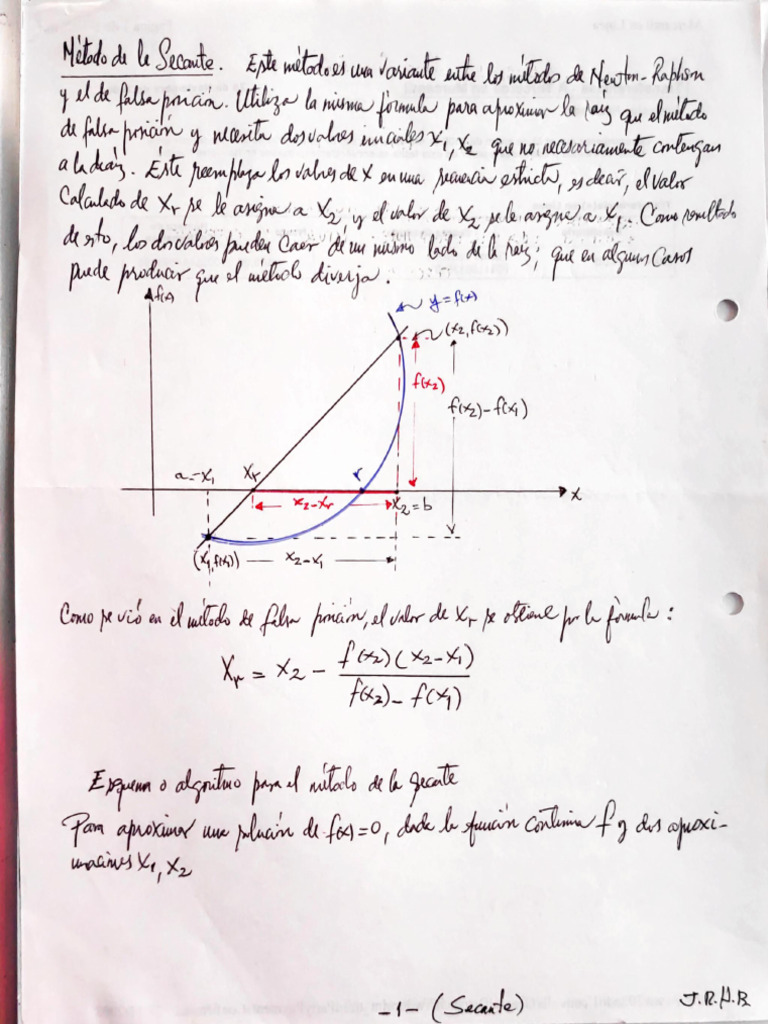 Método de la Secante. Este método es una variante entre los métodos de Newton-Raphson
y el de falsa posición. Utiliza la misma fórmula para aproximar la raíz que el método
de falsa posición y necesita dos valores iniciales x1, x2 que no necesariamente contengan
a la raíz. Éste reemplaza los valores de x en una secuencia estricta, es decir, el valor
Calculado de Xr se le asigna a X2 y el valor de X2 se le asigna a X1. Como resultado
de esto, los dos valores pueden caer de un mismo lado de la raíz; que en algunos casos
puede producir que el método diverja.
f(x)
y=f(x)
(x2, f(x2))
f(x2)
f(x2)-f(x1)
a=x1
Xr
r
x
x2-xr
x2=b
(x1, f(x1))
x2-x1
Como se vió en el método de falsa posición, el valor de Xr se obtiene por la fórmula:
Xr = x2 - f(x2)(x2-x1) / f(x2)-f(x1)
Esquema o algoritmo para el método de la secante
Para aproximar una solución de f(x)=0, dada la función continua f y dos aproxi-
maciones x1, x2
-1- (Secante)
J.R.H.R